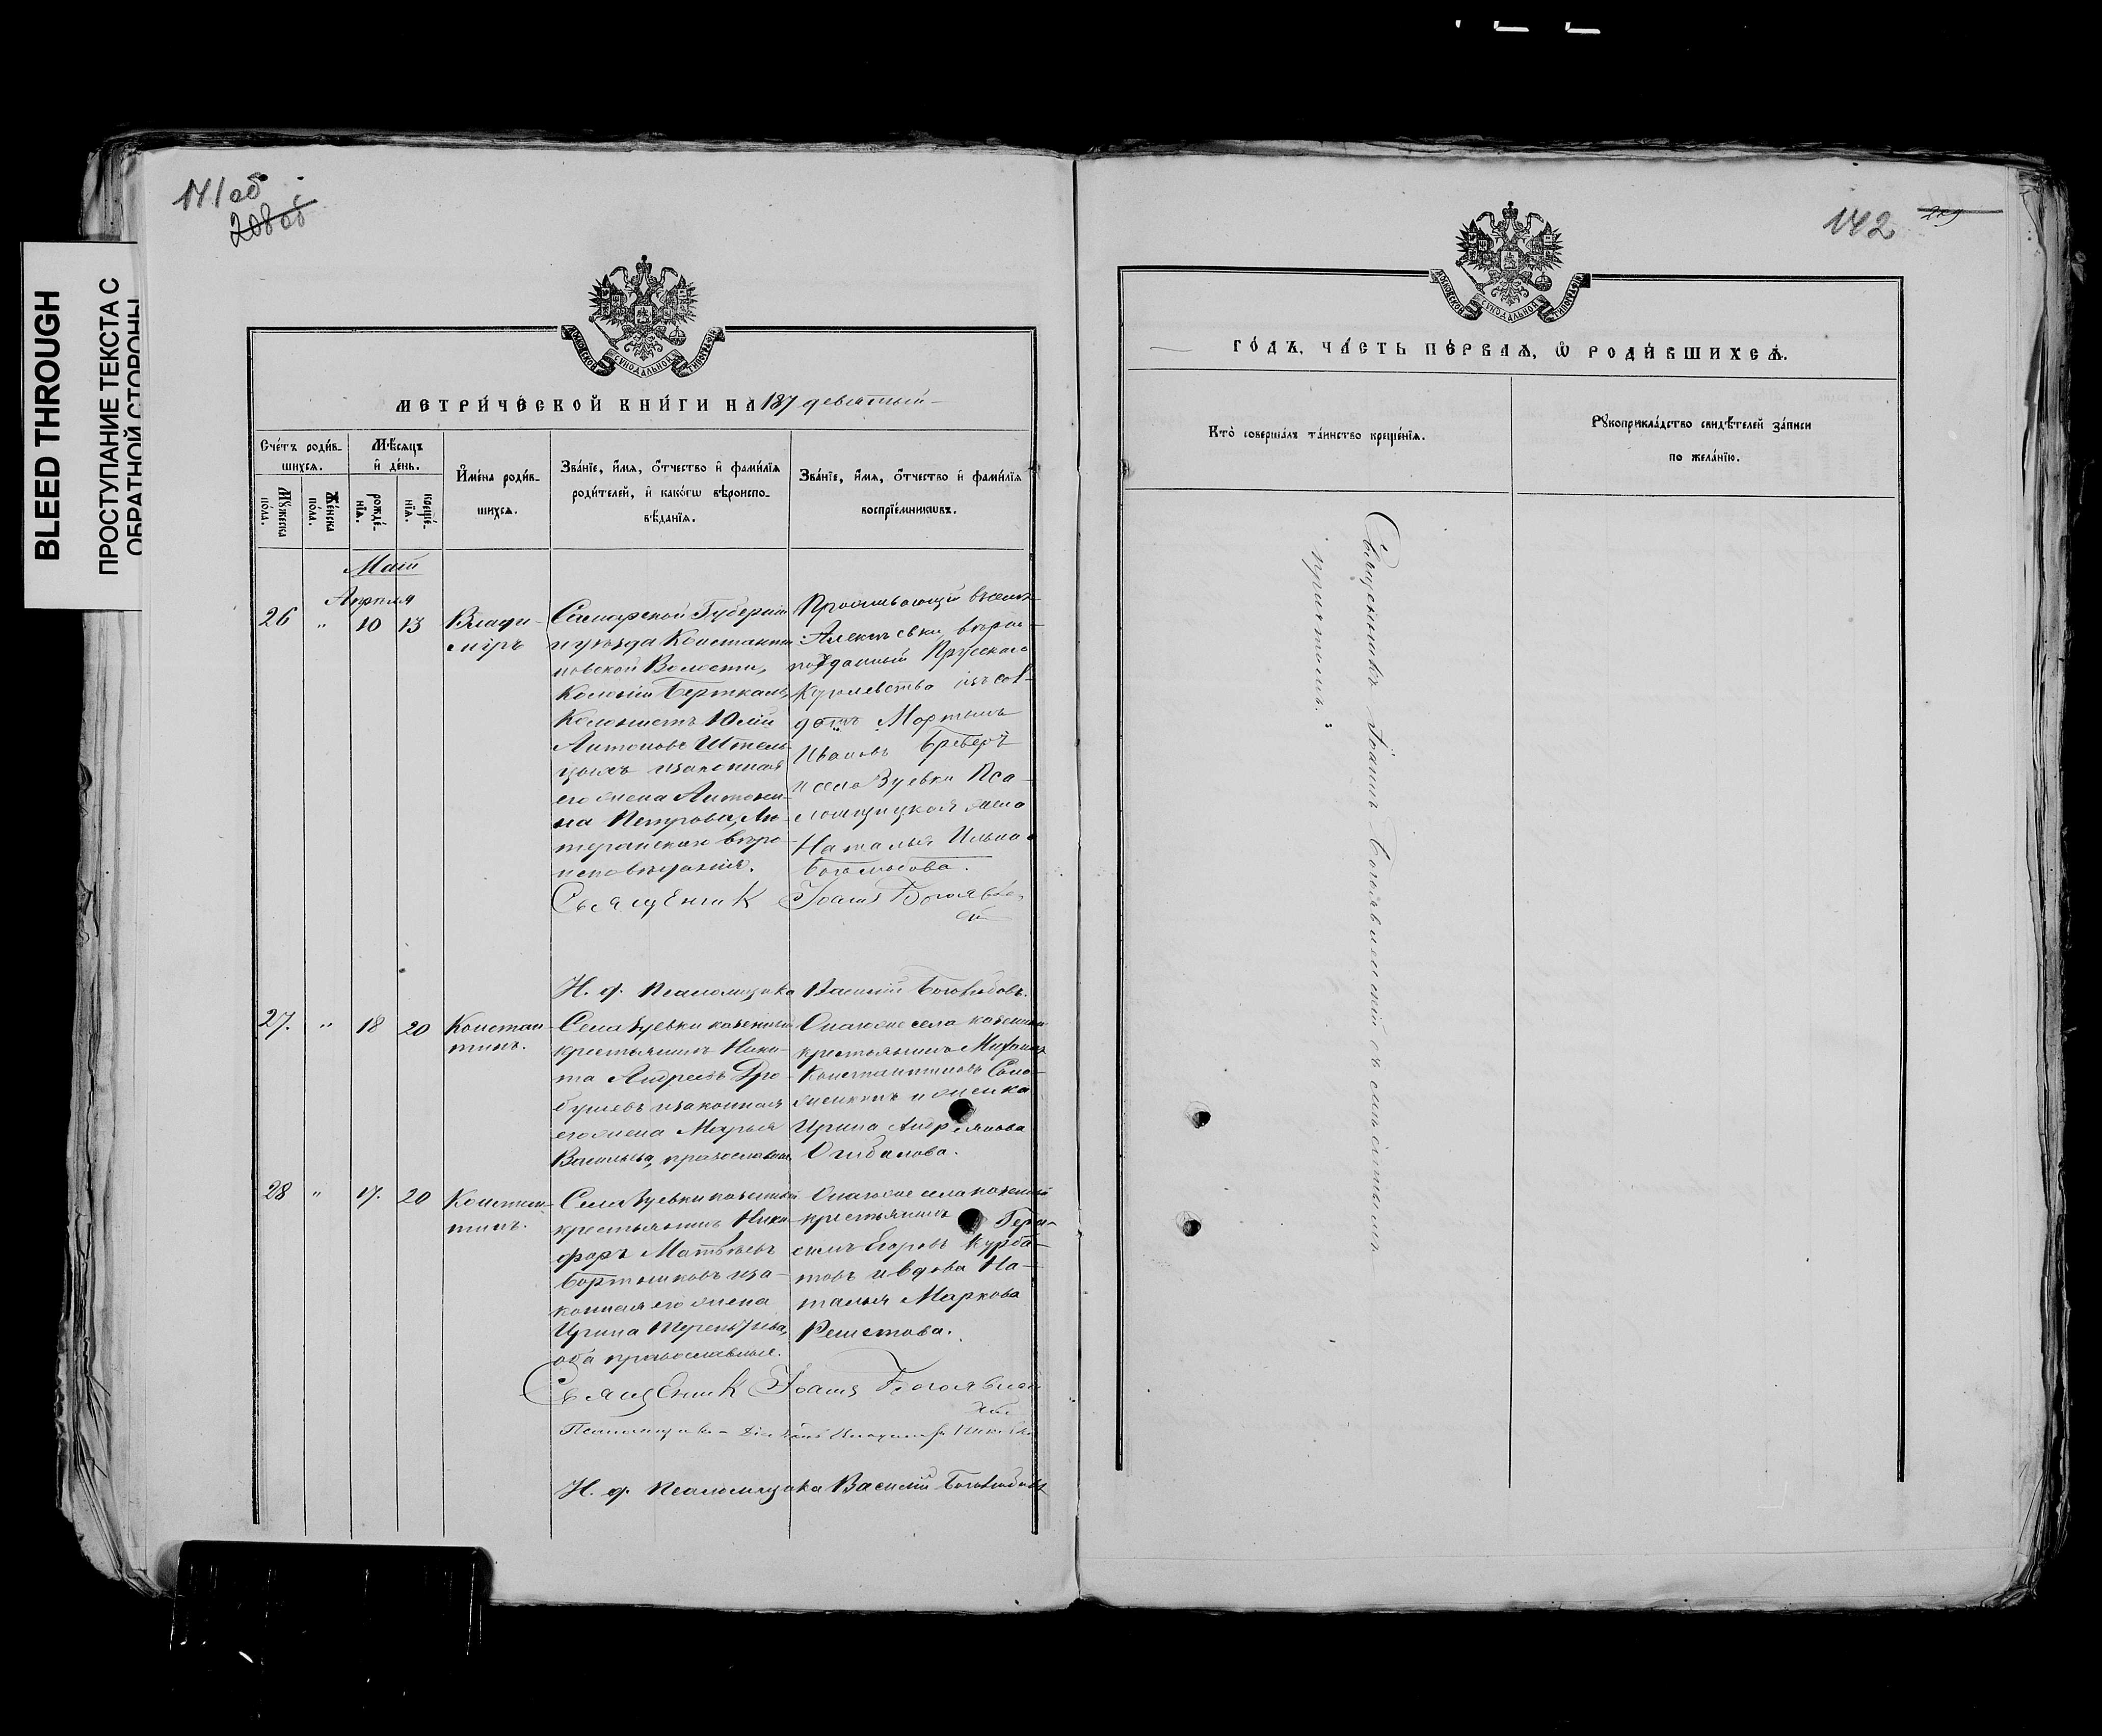 141 об
208 об
BLEED THROUGH
ПРОСТУПАНИЕ ТЕКСТА С
ОБРАТНОЙ СТОРОНЫ
МЕТРИ́ЧЕСКОЙ КНИ́ГИ НА 187 девятый
Сче́тъ роди́в-
шихся.
Му́жеска
по́ла.
Же́нска
по́ла.
Мѣ́сяцъ
и҆ де́нь.
рожде́-
нїя.
креще́-
нїя.
И҆мена̀ роди́в-
шихся.
Зва́нїе, и҆́мя, ѻ҆́тчество и҆ фами́лїя
роди́телей, и҆ како́гѡ вѣроиспо-
вѣ́данїя.
Зва́нїе, и҆́мя, ѻ҆́тчество и҆ фами́лїя
воспрїе́мникѡвъ.
Май
Апреля
26 " 10 13
Влади-
міръ
Самарской Губерніи
и уѣзда Константи
новской Волости,
Колоніи
Колонистъ Юлій
Антоновъ Штель
и законная
его жена Антони-
на Петрова, Лю-
теранскаго вѣро
исповѣданія.
Проживающій въ селѣ
Алексѣевкѣ
подданный Прусскаго
Королевства изъ сол-
датъ Мартынъ
Ивановъ
и села Зуевки Пса-
ломщицкая жена
Наталья Ильина
Боголюбова.
Священник Іоаннъ Богоявлен
ск
И. д. псаломщика Василій Боголюбовъ.
27. " 18 20
Констан-
тинъ.
Села Зуевки казенный
крестьянинъ Ники-
та Андреевъ Дро-
и законная
его жена Марья
Васильева, православн.
Онагоже села казенный
крестьянинъ Михаилъ
Константиновъ
и
Ирина Андреянова
Огибалова.
28 " 17. 20
Констан-
тинъ.
Села Зуевки казенный
крестьянинъ Ники-
форъ Матвѣевъ
Бортниковъ и за-
конная его жена
Ирина Терентьева,
оба православные.
Онагоже села казенный
крестьянинъ Гера-
симъ Егоровъ Курба-
товъ и вдова На-
талья Маркова
Решетова.
Священник Іоаннъ Богоявлен
ск
И. д. псаломщика Василій Боголюбовъ
142
209
ГО́ДЪ, ЧА́СТЬ ПЕ́РВАЯ, Ѡ҆ РОДИ́ВШИХСЯ.
Кто̀ соверша́лъ та́инство креще́нїя.
Рꙋкоприкла́дство свидѣ́телей за́писи
по жела́нїю.
Священникъ Іоаннъ Богоявленскій съ
причтомъ.